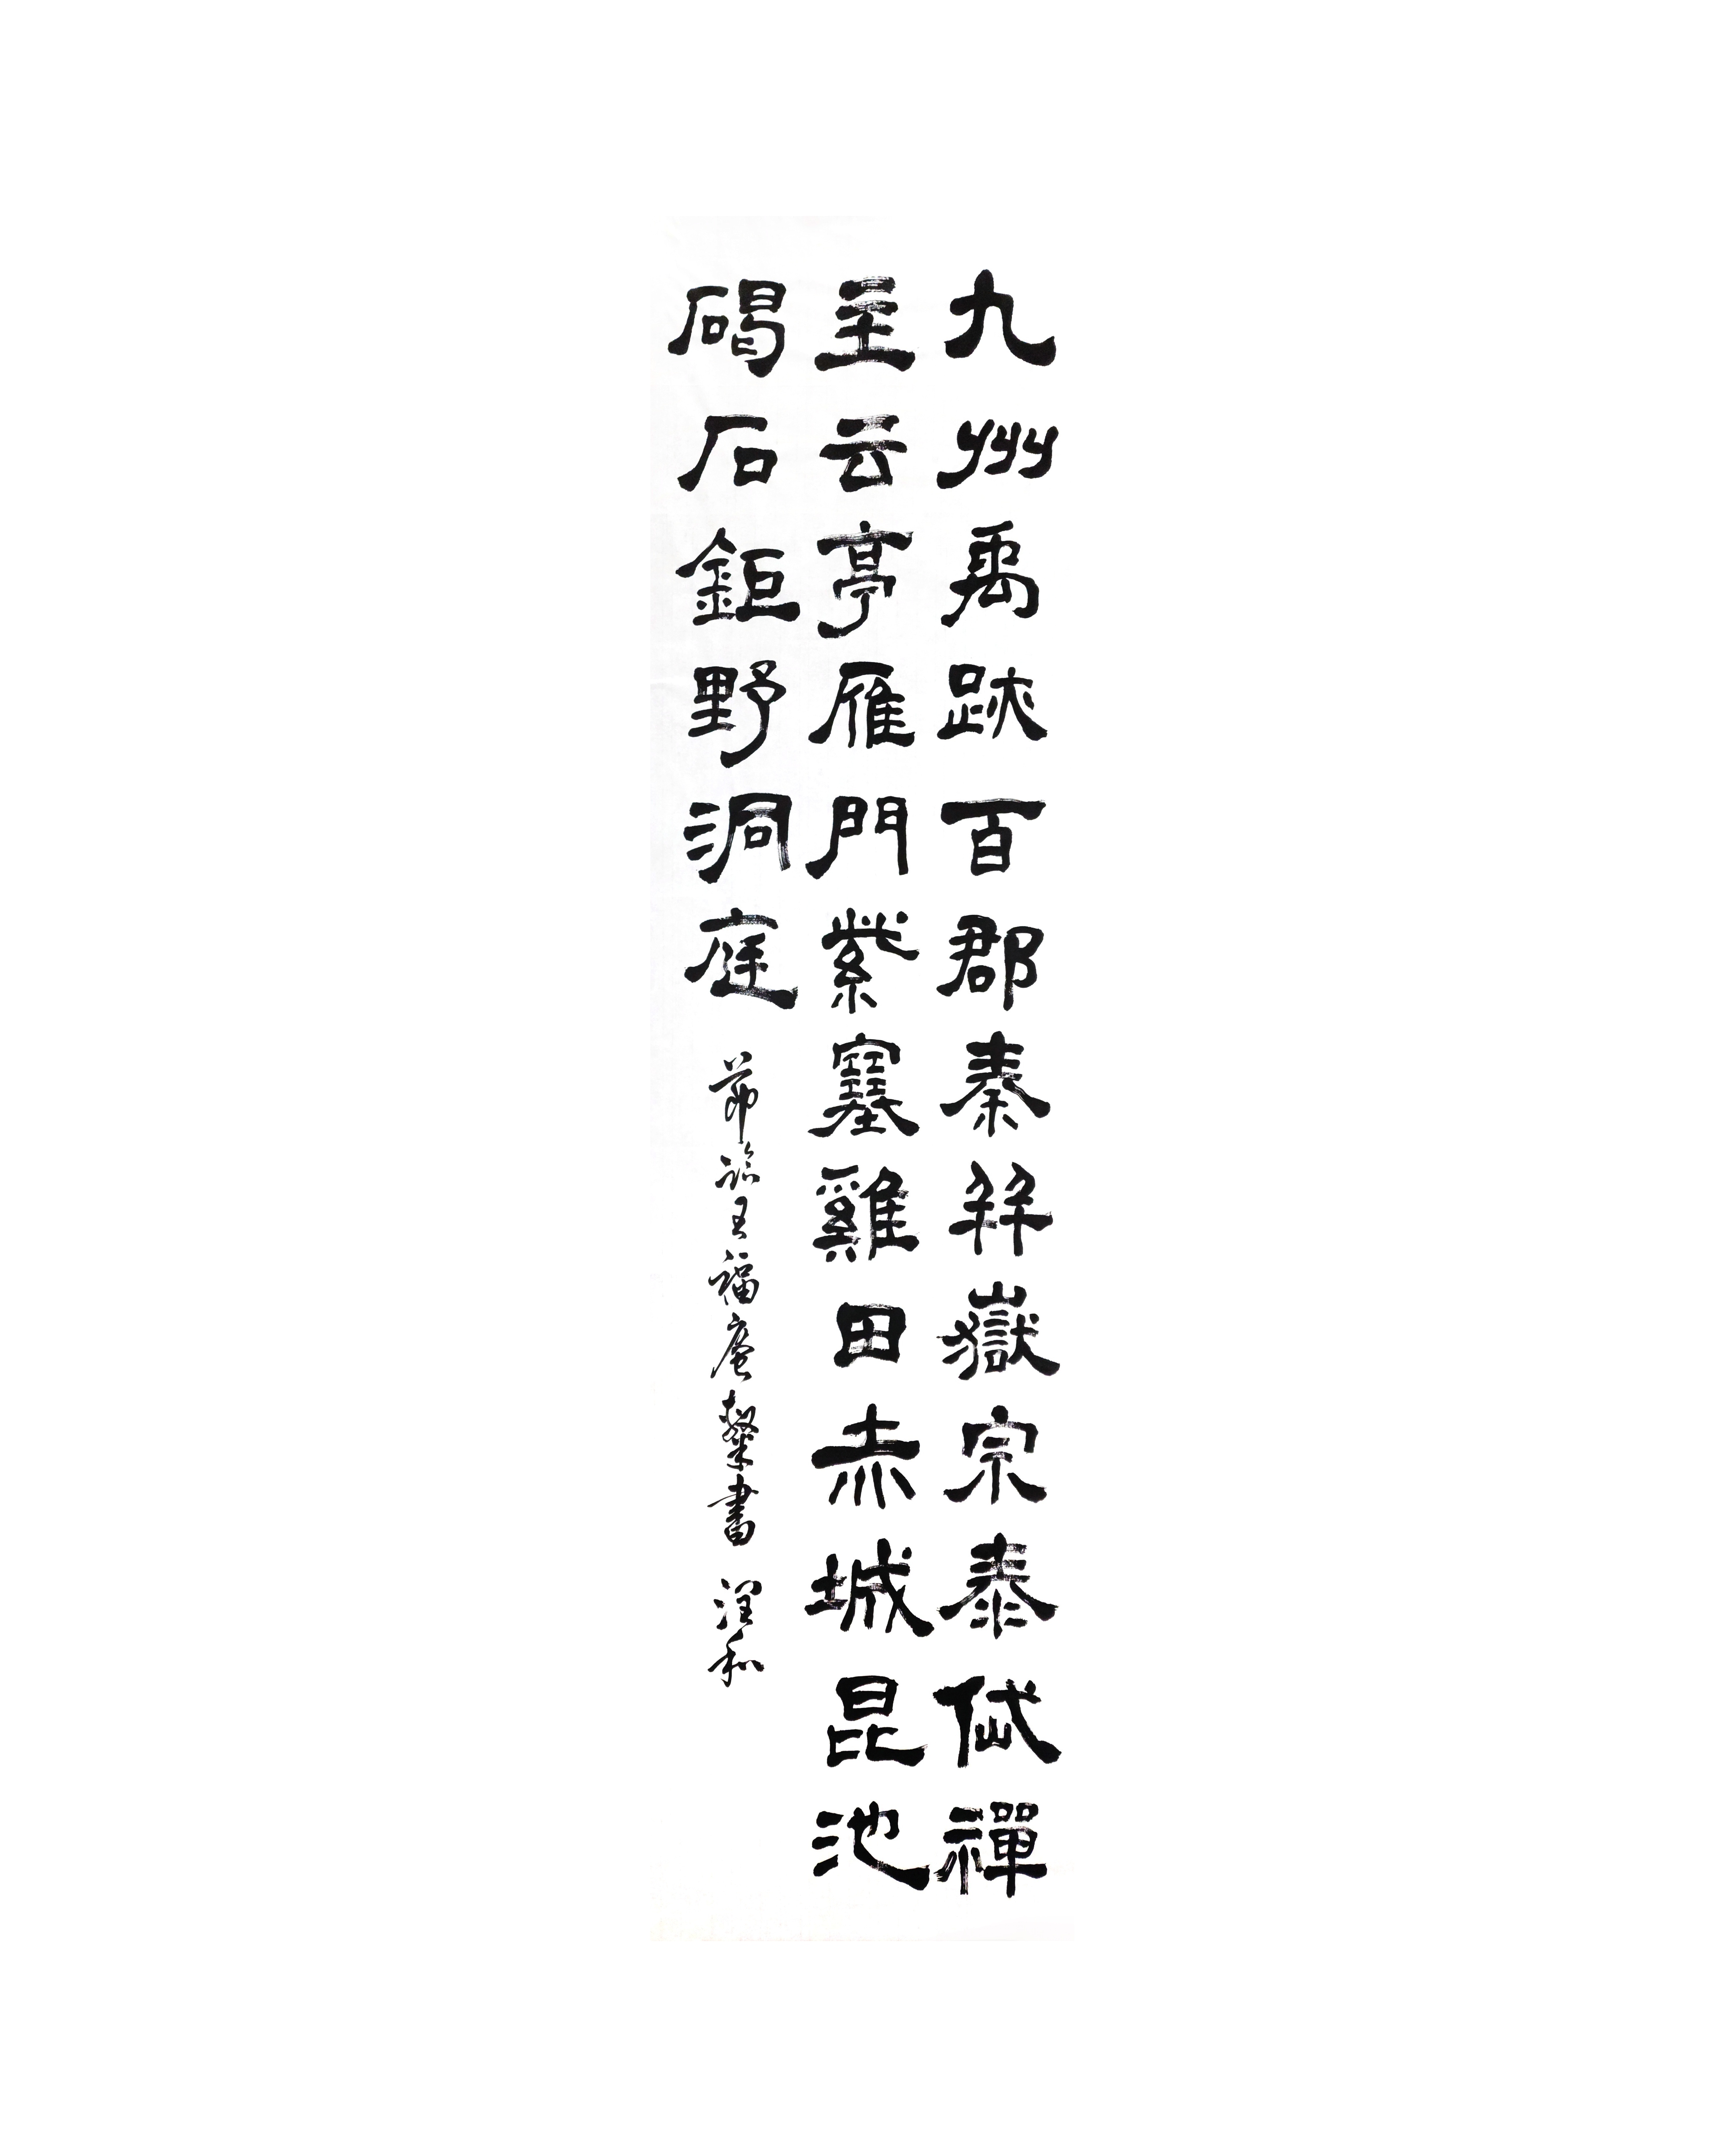 九州禹跡百郡秦幷嶽宗泰岱禪
主云亭雁門紫塞雞田赤城昆池
碣石鉅野洞庭
節臨王福庵隸書 潤和